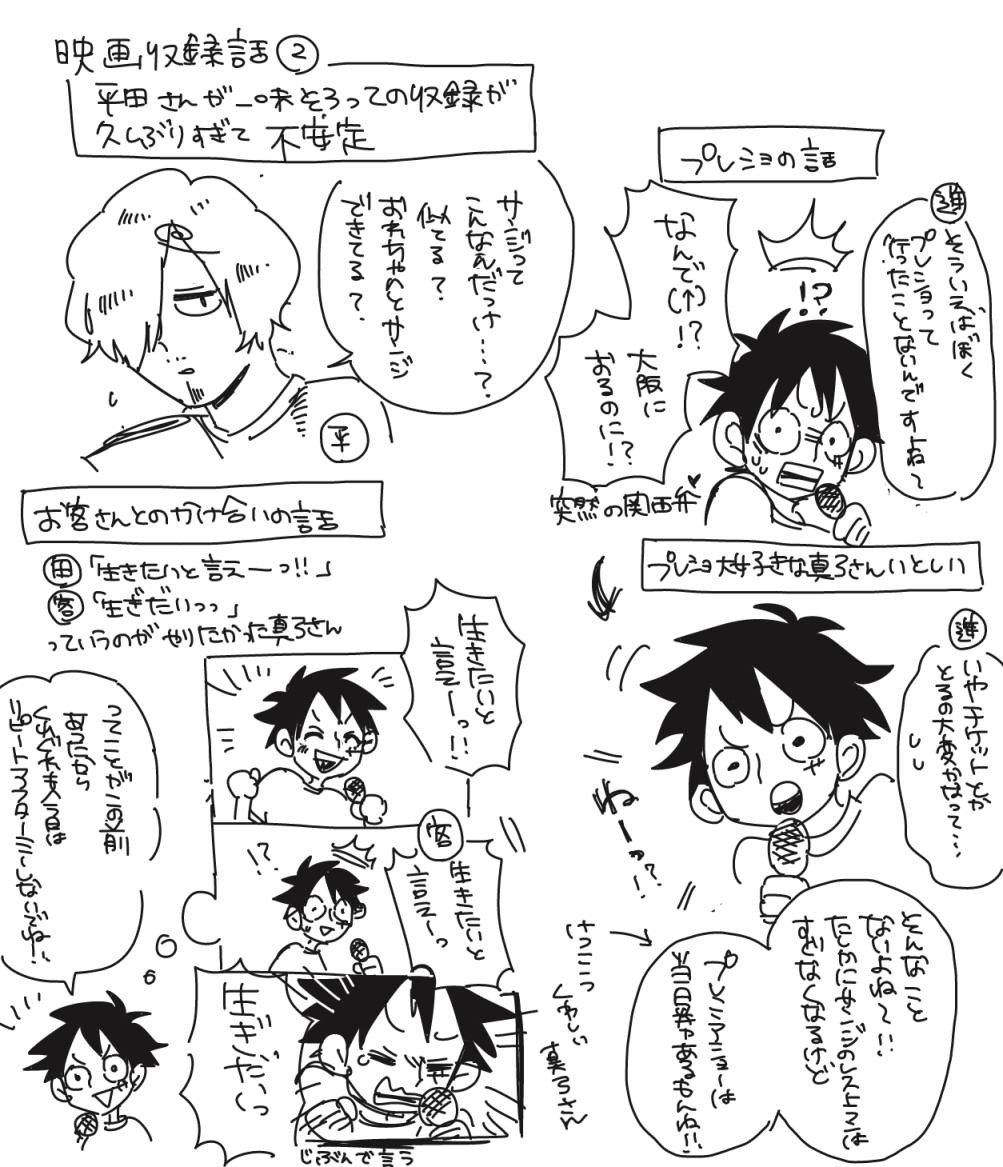 映画収録話②
平田さんが一味そろっての収録が
久しぶりすぎて不安定
サンジって
こんなんだっけ…?
似てる?
おれちゃんとサンジ
できてる?
平
プレショの話
進
そういえばぼく
プレショって
行ったことないんですよねー
!?
なんで(↑)!?
大阪に
おるのに!?
突然の関西弁
プレショ大好きな真弓さんいとしい
進
いやチケットとか
とるの大変かなって…
ねーっ?!
そんなこと
ないよね〜!!
たしかにサンジのレストランは
すぐなくなるけど
プレミアショーは
当日券やあるもんね!!
けっこうくわしい
真弓さん
お客さんとのかけ合いの話
田「生きたいと言えーっ!!」
客「生ぎだいっっ」
っていうのがやりたかった真弓さん
生きたいと
言えーっ!!
客
生きたいと
言えーっ
!?
生ぎだいっ
じぶんで言う
ってことがこの前
あったから
くれぐれも今日は
リピートアフターミーしないでね!!